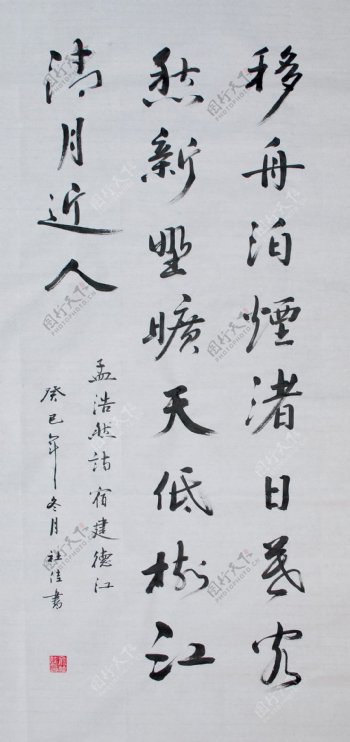 移舟泊煙渚日暮客
愁新野曠天低樹江
清月近人
孟浩然詩宿建德江
癸巳年冬月社佳書
图行天下 PHOTOPHOTO.CN